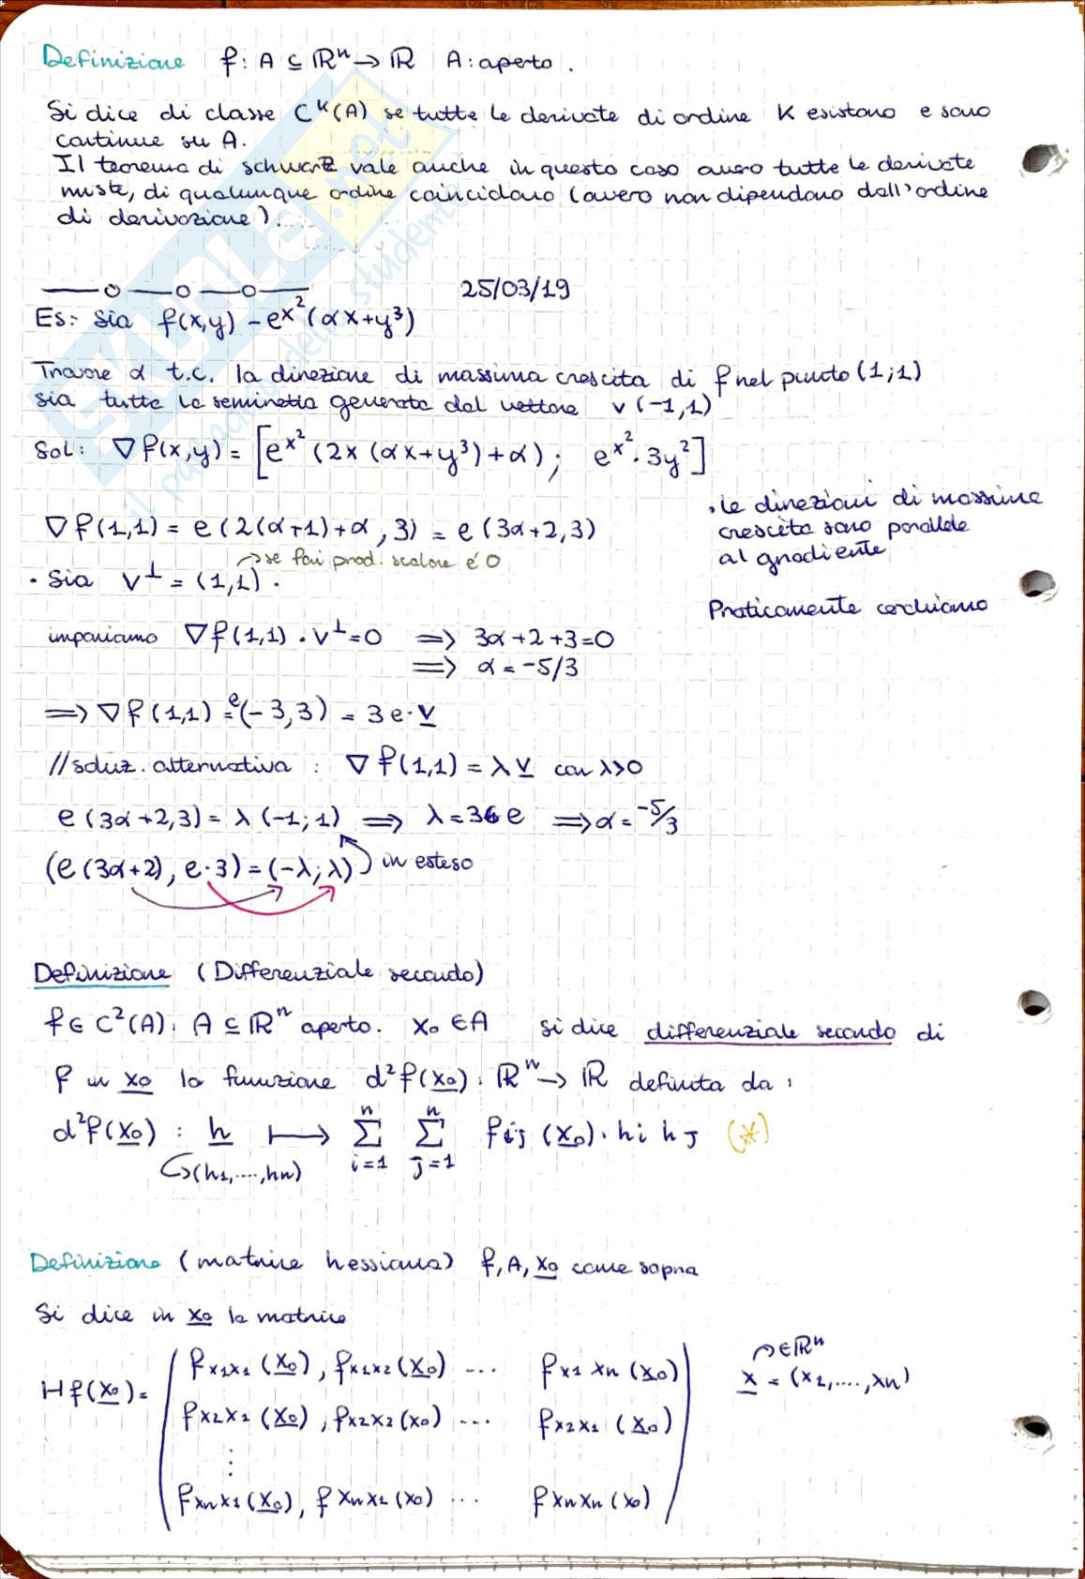 Definizione f: A ⊆ ℝⁿ → ℝ A: aperto.
Si dice di classe Cᴷ(A) se tutte le derivate di ordine K esistono e sono
continue su A.
Il teorema di schwarz vale anche in questo caso ovvero tutte le derivate
miste, di qualunque ordine coincidono (ovvero non dipendono dall'ordine
di derivazione).
—o—o—o— 25/03/19
Es: Sia f(x,y) - e^x² (αx+y³)
Trovare α t.c. la direzione di massima crescita di f nel punto (1;1)
sia tutta la semiretta generata dal vettore v (-1,1)
Sol: ∇f(x,y) = [e^x² (2x (αx+y³)+α); e^x²·3y²]
∇f(1,1) = e (2(α+1)+α, 3) = e (3α+2,3)
• le direzioni di massima
crescita sono parallele
al gradiente
→ se fai prod. scalare è 0
• Sia v^⊥ = (1,1).
Praticamente cerchiamo
imponiamo ∇f(1,1) · v^⊥ = 0 ⟹ 3α+2+3=0
⟹ α = -5/3
⟹ ∇f(1,1) = e(-3,3) = 3e·v
//soluz. alternativa : ∇f(1,1) = λv con λ>0
e (3α+2,3) = λ(-1;1) ⟹ λ = 3e ⟹ α = -5/3
(e (3α+2), e·3) = (-λ; λ)) in esteso
Definizione (Differenziale secondo)
f ∈ C²(A). A ⊆ ℝⁿ aperto. x₀ ∈ A si dice differenziale secondo di
f in x₀ la funzione d²f(x₀): ℝⁿ → ℝ definita da:
d²f(x₀) : h ⟼ Σ_{i=1}^{n} Σ_{j=1}^{n} fij (x₀)·hi hj (*)
↪(h₁,....,hn)
Definizione (matrice hessiana) f, A, x₀ come sopra
Si dice in x₀ la matrice
Hf(x₀) =
fx₁x₁ (x₀), fx₁x₂ (x₀) ... fx₁xn (x₀)
fx₂x₁ (x₀), fx₂x₂ (x₀) ... fx₂x₁ (x₀)
⋮
fxnx₁ (x₀), fxnx₂ (x₀) ... fxnxn (x₀)
∈ℝⁿ
x = (x₁,....,xn)